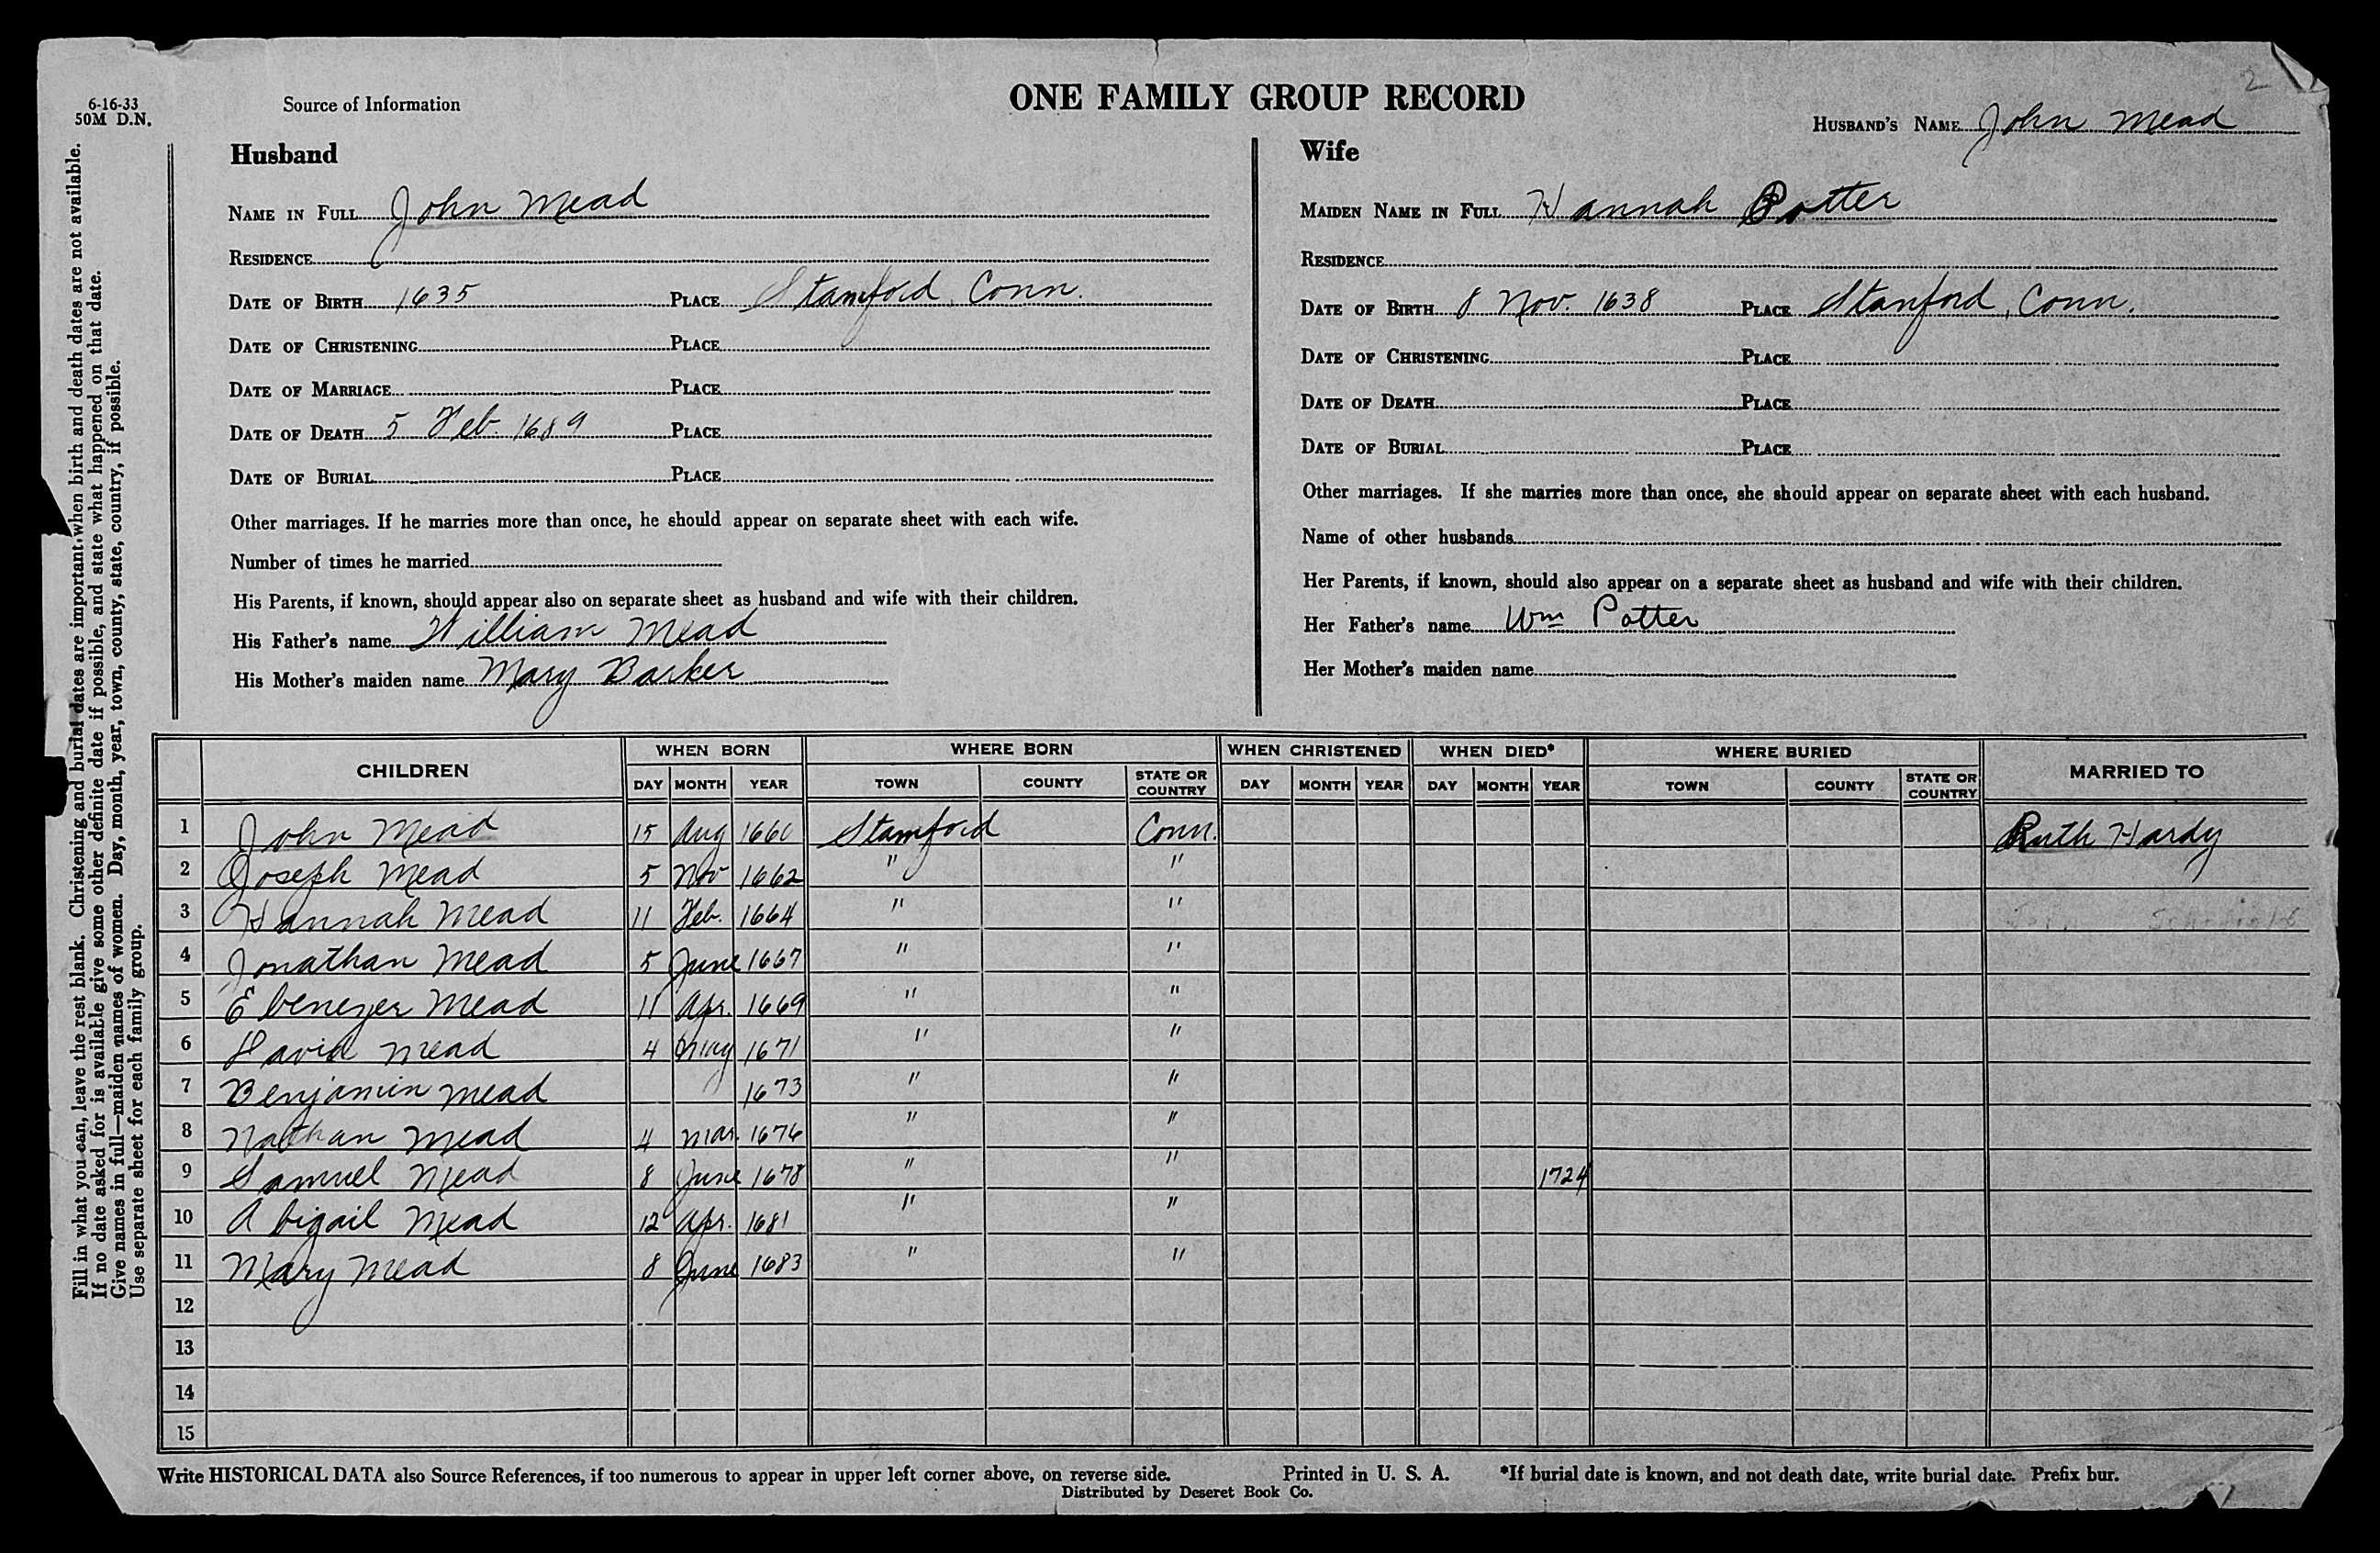 2
6-16-33
50M D.N.
Source of Information
ONE FAMILY GROUP RECORD
HUSBAND'S NAME John Mead
Husband
NAME IN FULL John Mead
RESIDENCE
DATE OF BIRTH 1635 PLACE Stamford, Conn.
DATE OF CHRISTENING PLACE
DATE OF MARRIAGE PLACE
DATE OF DEATH 5 Feb. 1689 PLACE
DATE OF BURIAL PLACE
Other marriages. If he marries more than once, he should appear on separate sheet with each wife.
Number of times he married
His Parents, if known, should appear also on separate sheet as husband and wife with their children.
His Father's name William Mead
His Mother's maiden name Mary Barker
Wife
MAIDEN NAME IN FULL Hannah Potter
RESIDENCE
DATE OF BIRTH 8 Nov. 1638 PLACE Stanford, Conn.
DATE OF CHRISTENING PLACE
DATE OF DEATH PLACE
DATE OF BURIAL PLACE
Other marriages. If she marries more than once, she should appear on separate sheet with each husband.
Name of other husbands
Her Parents, if known, should also appear on a separate sheet as husband and wife with their children.
Her Father's name Wm Potter
Her Mother's maiden name
Fill in what you can, leave the rest blank. Christening and burial dates are important, when birth and death dates are not available.
If no date asked for is available give some other definite date if possible, and state what happened on that date.
Give names in full—maiden names of women. Day, month, year, town, county, state, country, if possible.
Use separate sheet for each family group.
CHILDREN WHEN BORN WHERE BORN WHEN CHRISTENED WHEN DIED* WHERE BURIED MARRIED TO
DAY MONTH YEAR TOWN COUNTY STATE OR COUNTRY DAY MONTH YEAR DAY MONTH YEAR TOWN COUNTY STATE OR COUNTRY
1 John Mead 15 Aug 1660 Stamford Conn. Ruth Hardy
2 Joseph Mead 5 Nov 1662 " "
3 Hannah Mead 11 Feb. 1664 " "
4 Jonathan Mead 5 June 1667 " "
5 Ebenezer Mead 11 Apr. 1669 " "
6 David Mead 4 May 1671 " "
7 Benjamin Mead 1673 " "
8 Nathan Mead 4 Mar. 1676 " "
9 Samuel Mead 8 June 1678 " " 1724
10 Abigail Mead 12 Apr. 1681 " "
11 Mary Mead 8 June 1683 " "
12
13
14
15
Write HISTORICAL DATA also Source References, if too numerous to appear in upper left corner above, on reverse side. Printed in U. S. A. *If burial date is known, and not death date, write burial date. Prefix bur.
Distributed by Deseret Book Co.